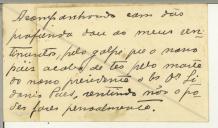 Acompanhando com dôr
profunda dou ao meus sen-
timentos, pelo golpe que o nosso
páis acaba de ter pela morte
do nosso presidente o Exº Snr Si-
donio Paes, sentindo não o po-
der fazer pessoalmente.